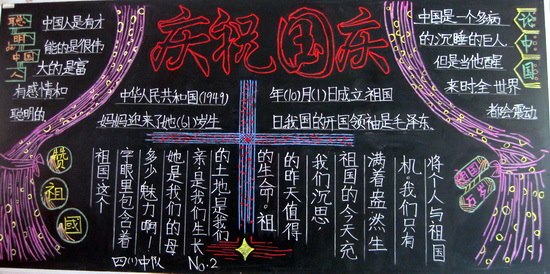 庆祝国庆
聪明中国人
中国人是有才
能的是很伟
大的是富
有感情和
聪明的
论中国
中国是一个多病
的沉睡的巨人
但是当他醒
来时全世界
都会震动
中华人民共和国(1949)年(10)月(1)日成立祖国
妈妈迎来了她(61)岁生日我国的开国领袖是毛泽东.
赞祖國
祖国这个
字眼里包含着
多少魅力啊！
她是我们的母
亲是我们生长
的土地是我们
的生命。祖
的昨天值得
我们沉思，
祖国的今天充
满着盎然生
机，我们只有
将个人与祖国
祖国万岁
四(1)中队 No.2